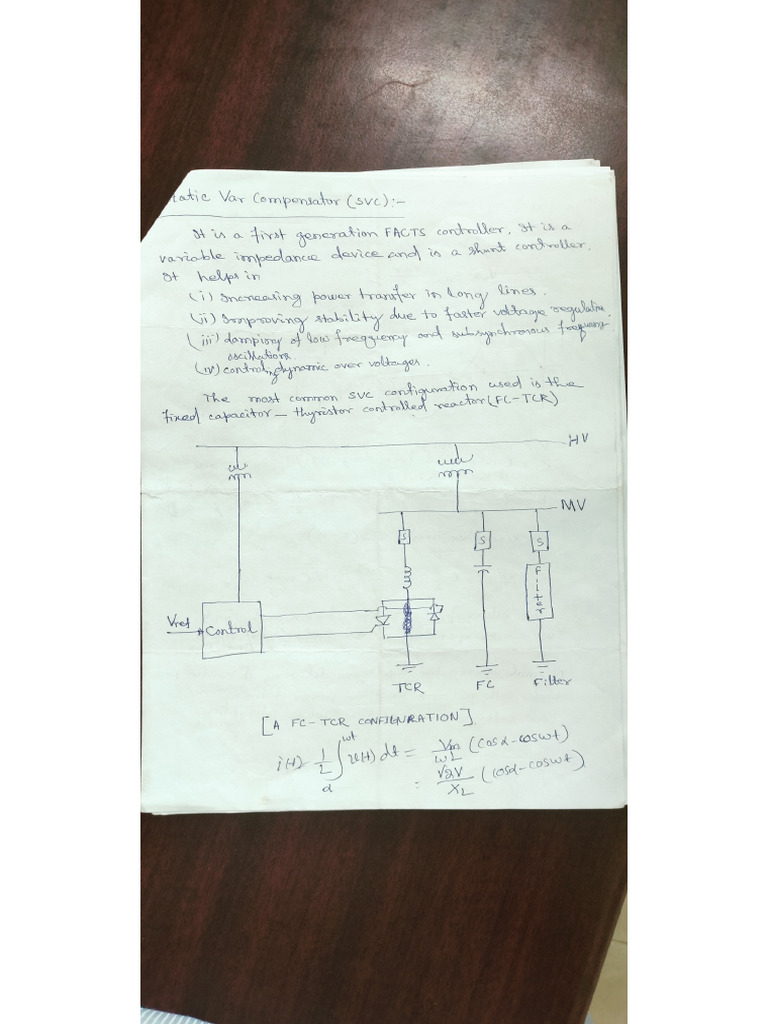 Static Var Compensator (SVC):-
It is a first generation FACTS controller. It is a
variable impedance device and is a shunt controller.
It helps in
(i) Increasing power transfer in long lines.
(ii) Improving stability due to faster voltage regulation.
(iii) damping of low frequency and subsynchronous frequency
oscillations.
(iv) control dynamic over voltages.
The most common SVC configuration used is the
fixed capacitor - thyristor controlled reactor (FC-TCR)
HV
MV
S S S
Filter
Vref
Control
TCR FC Filter
[A FC-TCR CONFIGURATION]
i(t) = 1/L ∫_α^ωt v(t) dt = Vm/ωL (cosα - cosωt)
= √2V/X_L (cosα - cosωt)